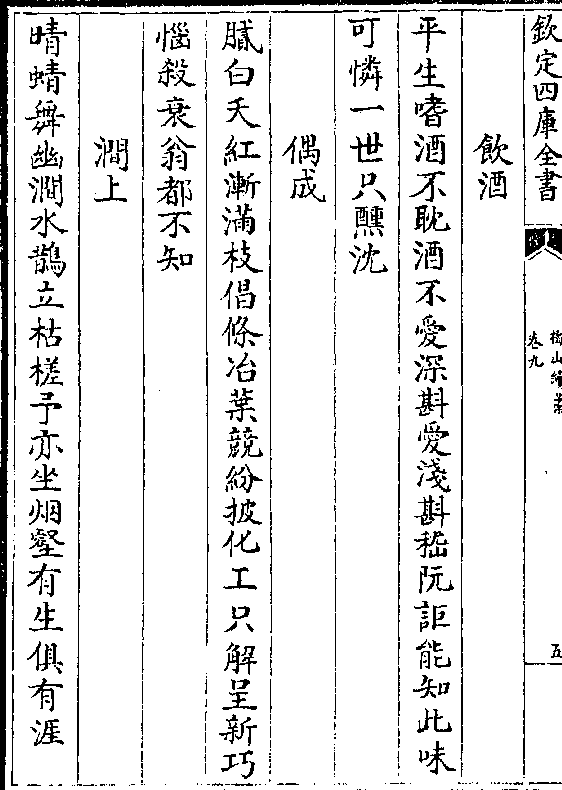 欽定四庫全書
梅山續藁
卷九
五
飲酒
平生嗜酒不耽酒不愛深斟愛淺斟嵇阮詎能知此味
可憐一世只醺沈
偶成
膩白夭紅漸滿枝倡條冶葉競紛披化工只解呈新巧
惱殺衰翁都不知
澗上
晴蜻舞幽澗水鵲立枯槎予亦坐烟壑有生俱有涯